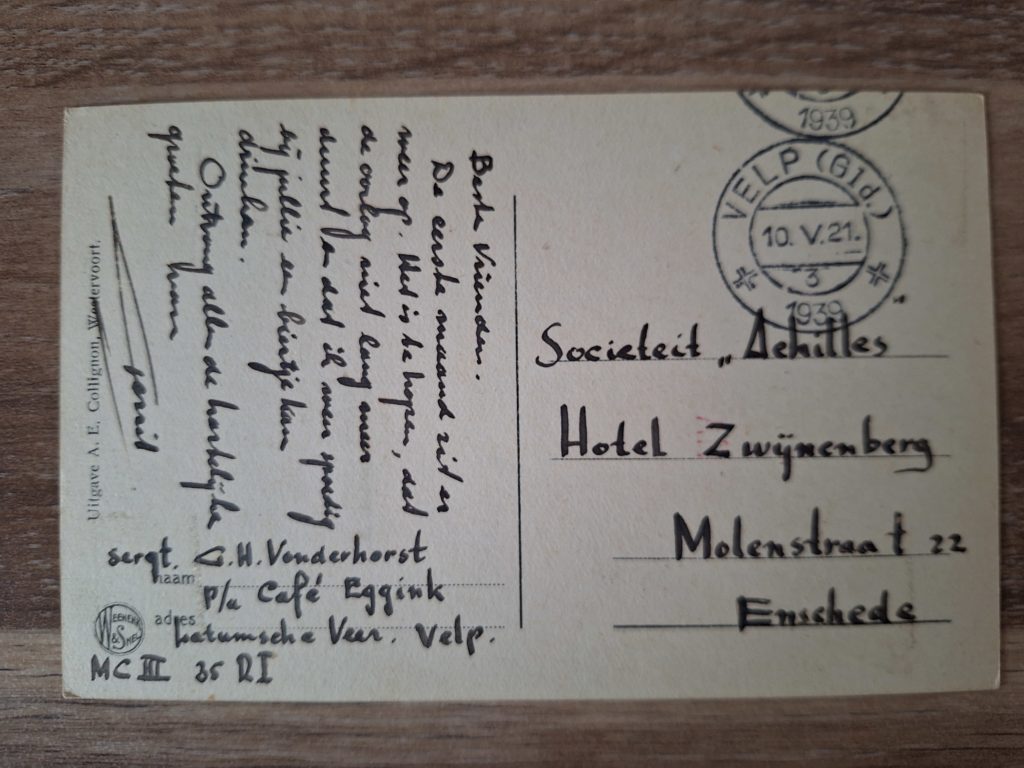 Beste Vrienden.
De eerste maand zit er
weer op. Het is te hopen, dat
de oorlog niet lang meer
duurt en dat ik weer spoedig
bij jullie een biertje kan
drinken.
Ontvang allen de hartelijke
groeten van
Uitgave A. E. Collignon, Westervoort.
sergt. G.H. Vonderhorst
naam
p/a Café Eggink
adres
Latumsche Veer. Velp.
WEENENK & SNEL
MC III 35 RI
1939
VELP (Gld.)
10. V. 21.
3
1939
Societeit „Achilles"
Hotel Zwijnenberg
Molenstraat 22
Enschede